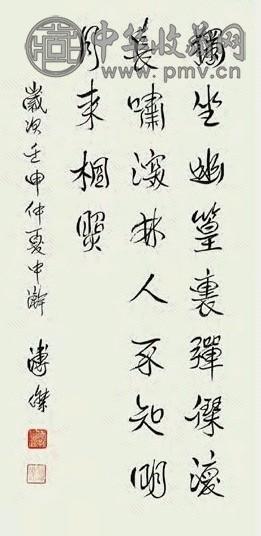 中华收藏网
www.pmv.cn
獨坐幽篁裏彈琴復
長嘯深林人不知明
月來相照
歲次壬申仲夏中澣 溥傑